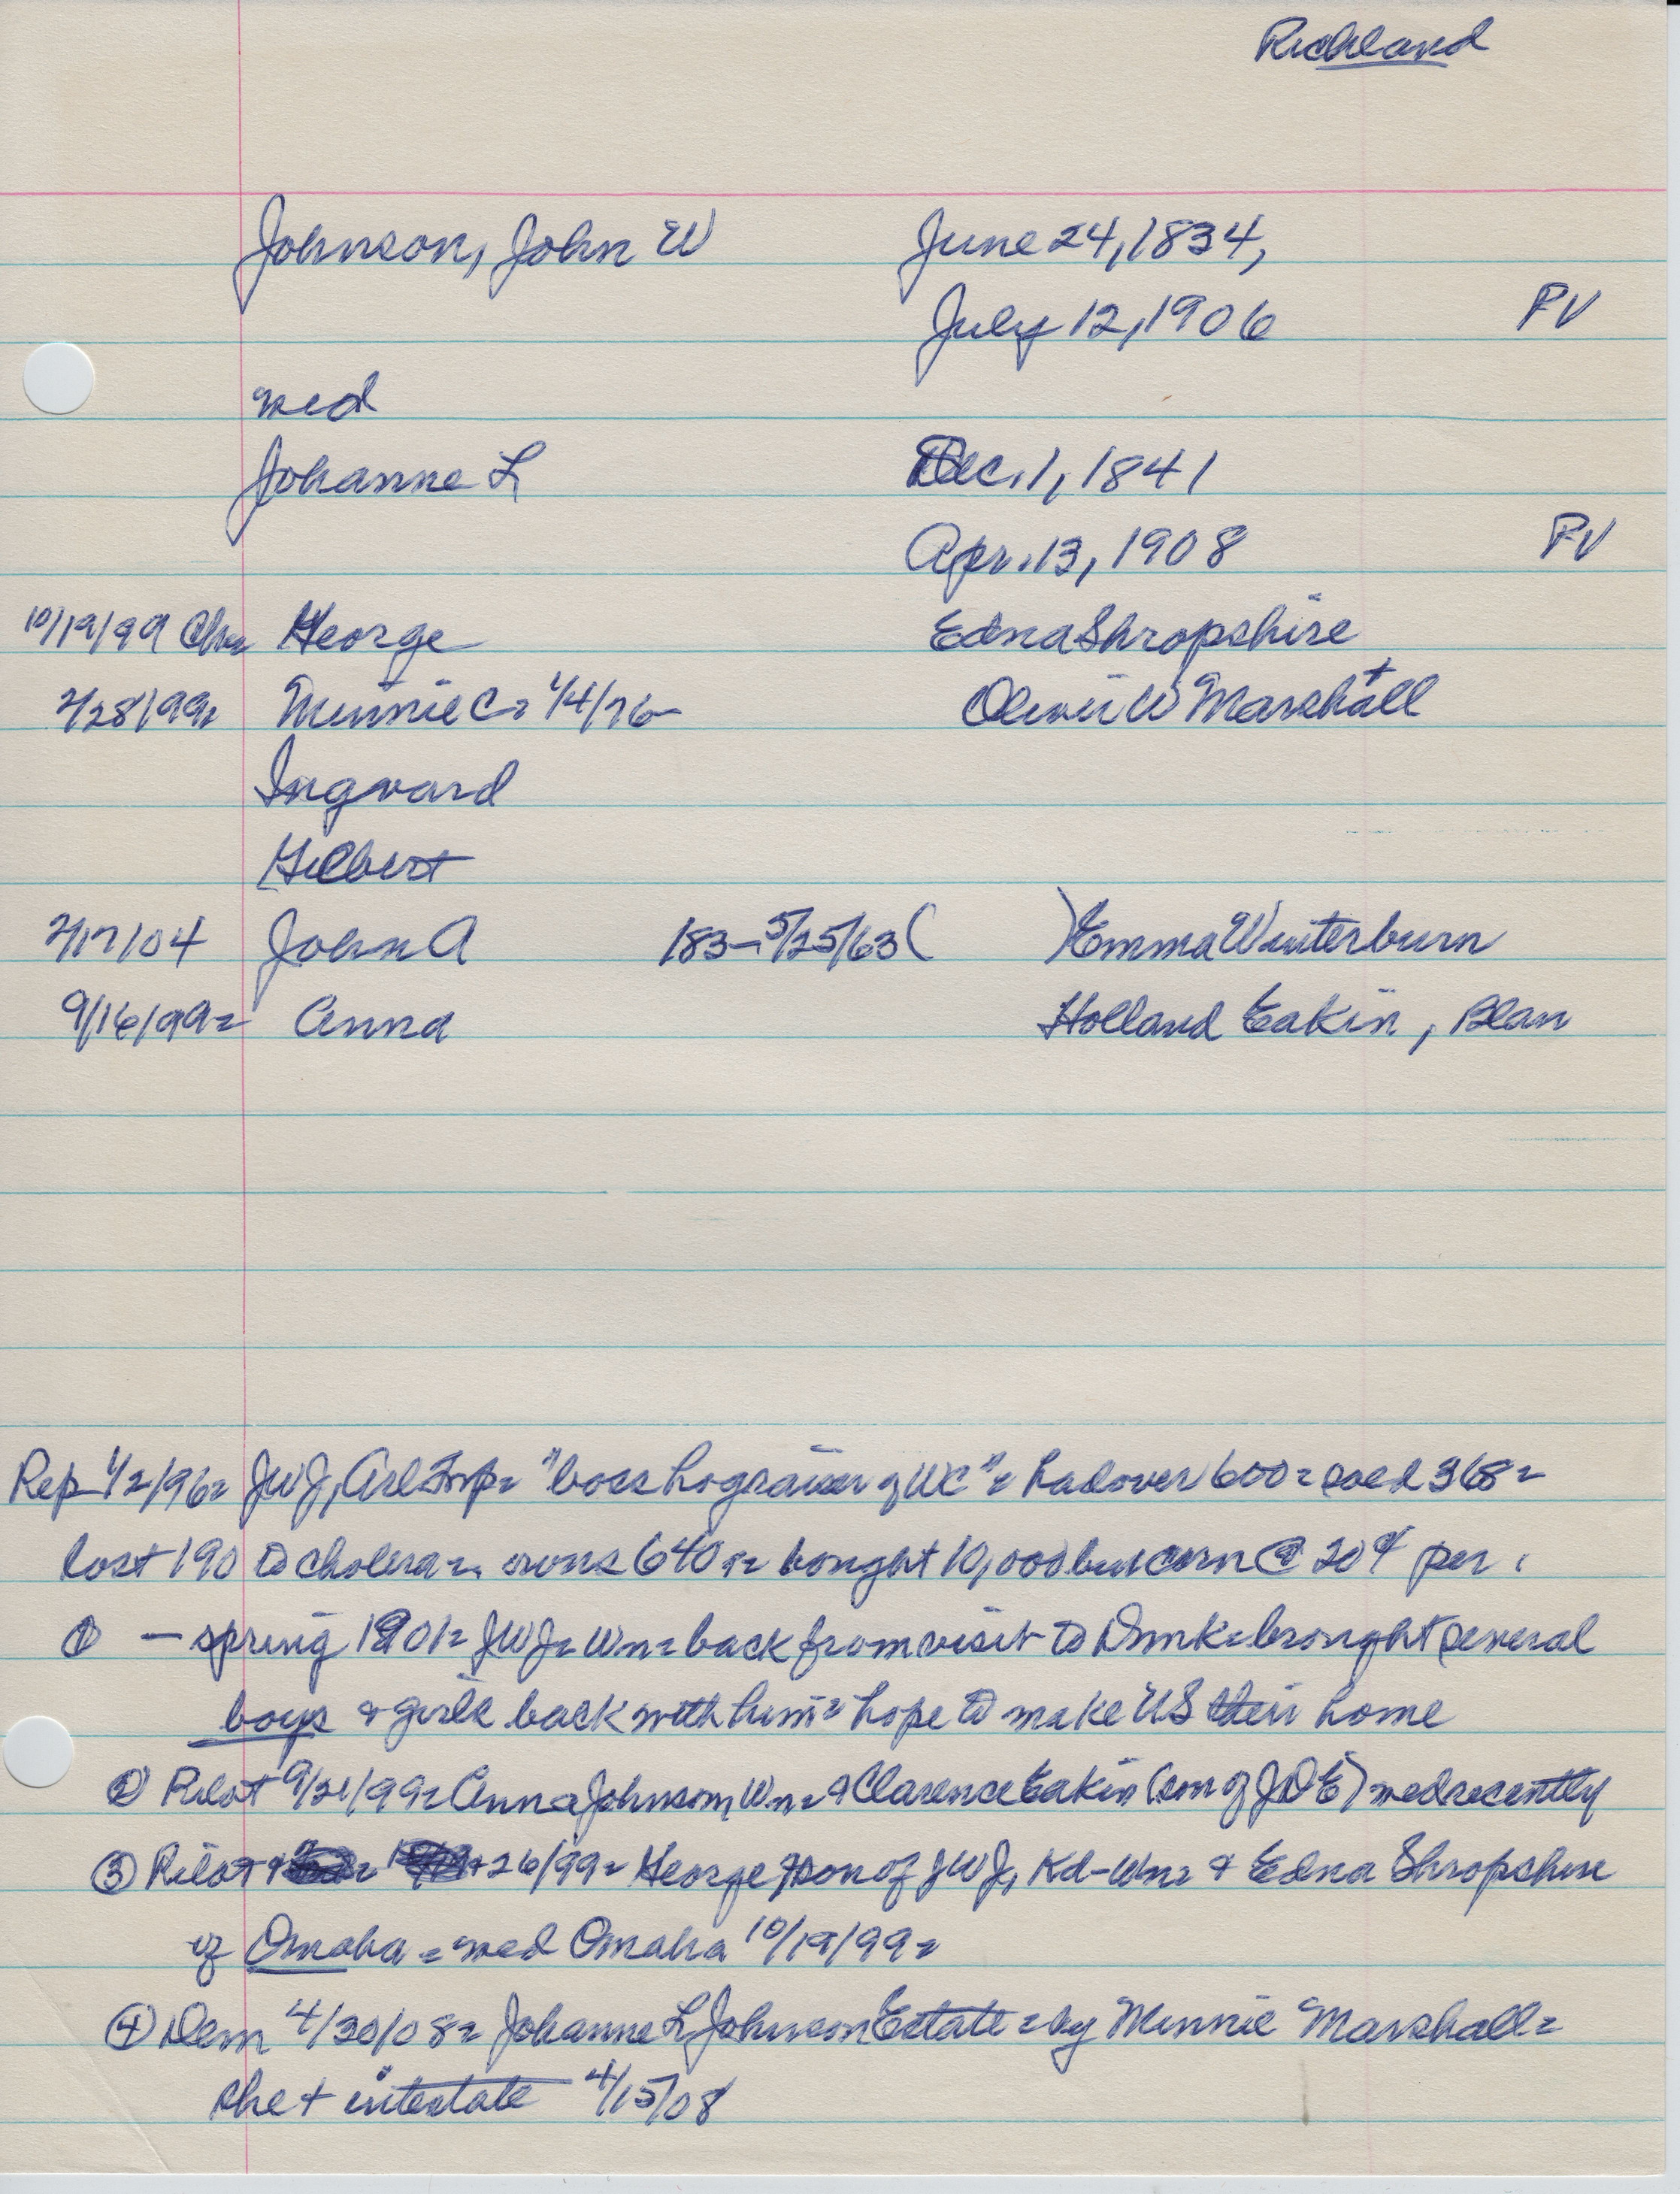 Richland
Johnson, John W June 24, 1834,
July 12, 1906 PV
med
Johanne L Dec. 1, 1841
Apr. 13, 1908 PV
10/19/99 George Edna Shropshire
2/28/99= Minnie C= 1/4/76- Oliver W Marshall +
Ingvard
Gilbert
2/17/04 John A 183-5/25/63 ( ) Emma Winterburn
9/16/99= Anna Holland Eakin, Blair
Rep 1/2/96= JWJ, Arl Twp= "boss hog raiser of WC"= had over 600= sold 368=
lost 190 to cholera= owns 640 a= bought 10,000 bu corn @ 20¢ per.
① - spring 1901= JWJ= Wn= back from visit to Dnmk= brought several
boys & girls back with him= hope to make US their home
② Pilot 9/21/99= Anna Johnson, Wn= & Clarence Eakin (son of JDE) med recently
③ Pilot 26/99= George, son of JWJ, Kd-Wn= & Edna Shropshire
of Omaha= med Omaha 10/19/99=
④ Dem 4/30/08= Johanne L Johnson Estate= by Minnie Marshall=
she + intestate 4/15/08